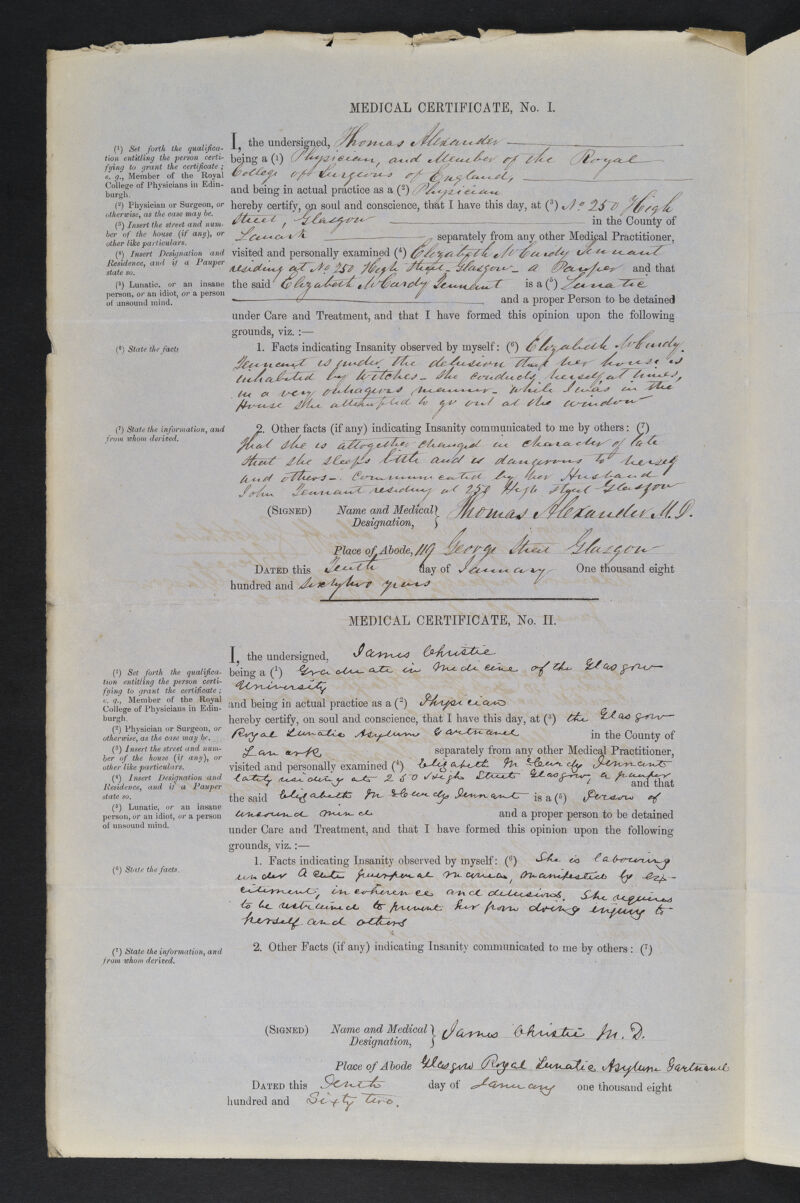 MEDICAL CERTIFICATE, No. I.
(1) Set forth the qualifica-
tion entitling the person certi-
fying to grant the certificate;
e. g., Member of the Royal
College of Physicians in Edin-
burgh.
(2) Physician or Surgeon, or
otherwise, as the case may be.
(3) Insert the street and num-
ber of the house (if any), or
other like particulars.
(4) Insert Designation and
Residence, and if a Pauper
state so.
(5) Lunatic, or an insane
person, or an idiot, or a person
of unsound mind.
I, the undersigned, Thomas Alexander
being a (1) Physician, and Member of the Royal
College of Surgeons of England,
and being in actual practice as a (2) Physician
hereby certify, on soul and conscience, that I have this day, at (3) No 250 High
Street, Glasgow in the County of
Lanark separately from any other Medical Practitioner,
visited and personally examined (4) Elizabeth McCurdy Tennant
residing at No 250 High Street Glasgow - a Pauper and that
the said Elizabeth McCurdy Tennant is a (5) Lunatic
and a proper Person to be detained
under Care and Treatment, and that I have formed this opinion upon the following
grounds, viz. :—
(6) State the facts
1. Facts indicating Insanity observed by myself: (6) Elizabeth McCurdy
Tennant is under the delusion that her house is
inhabited by Witches - She conducts herself at times,
in a very outrageous manner - while I was in the
House She attempted to go out at the window
(7) State the information, and
from whom derived.
2. Other facts (if any) indicating Insanity communicated to me by others: (7)
That she is altogether changed in character of late
that she sleeps little and is dangerous to herself
and others - Communicated by her Husband
John Tennant residing at 250 High Street Glasgow
(SIGNED) Name and Medical Designation, Thomas Alexander M.D.
Place of Abode, 119 George Street Glasgow
DATED this Tenth day of January One thousand eight
hundred and Sixty two years
MEDICAL CERTIFICATE, No. II.
(1) Set forth the qualifica-
tion entitling the person certi-
fying to grant the certificate;
e. g., Member of the Royal
College of Physicians in Edin-
burgh.
(2) Physician or Surgeon, or
otherwise, as the case may be.
(3) Insert the street and num-
ber of the house (if any), or
other like particulars.
(4) Insert Designation and
Residence, and if a Pauper
state so.
(5) Lunatic, or an insane
person, or an idiot, or a person
of unsound mind.
I, the undersigned, James Christie
being a (1) Graduate in Medicine of the Glasgow
University
and being in actual practice as a (2) Physician
hereby certify, on soul and conscience, that I have this day, at (3) the Glasgow
Royal Lunatic Asylum Gartnavel in the County of
Lanark separately from any other Medical Practitioner,
visited and personally examined (4) Elizabeth McCurdy Tennant
lately residing at 250 High Street Glasgow, a pauper and that
the said Elizabeth McCurdy Tennant is a (5) Person of
unsound mind and a proper person to be detained
under Care and Treatment, and that I have formed this opinion upon the following
grounds, viz. :—
(6) State the facts.
1. Facts indicating Insanity observed by myself: (6) She is labouring
under acute puerperal mania, manifested by ex-
citement, incoherence and delusions. She requires
to be restrained to prevent her from doing injury to
herself and others
(7) State the information, and
from whom derived.
2. Other Facts (if any) indicating Insanity communicated to me by others: (7)
(SIGNED) Name and Medical Designation, James Christie M.D.
Place of Abode Glasgow Royal Lunatic Asylum Gartnavel
DATED this Tenth day of January one thousand eight
hundred and Sixty two.